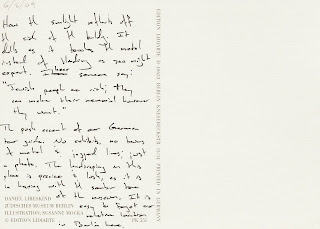 6/6/09
How the sunlight reflects off
the side of the bldg. It
dulls as it touches the metal
instead of blinding as you might
expect. I hear someone say:
"Jewish people are rich; they
can make their memorial however
they want."
The posh accent of our German
tour guide. No exhibits, no heavy
of metal & jagged lines; just
a photo. The landscaping in this
place is precise & lush, as it is
in keeping with the somber tone
of the museum. It is
easy to forget our
location
in Berlin here.
DANIEL LIBESKIND
JÜDISCHES MUSEUM BERLIN
ILLUSTRATION: SUSANNE MOCKA
© EDITION LIDIARTE
PK 251
EDITION LIDIARTE D-10623 BERLIN KNESEBECKSTR. 13/14 PRINTED IN GERMANY